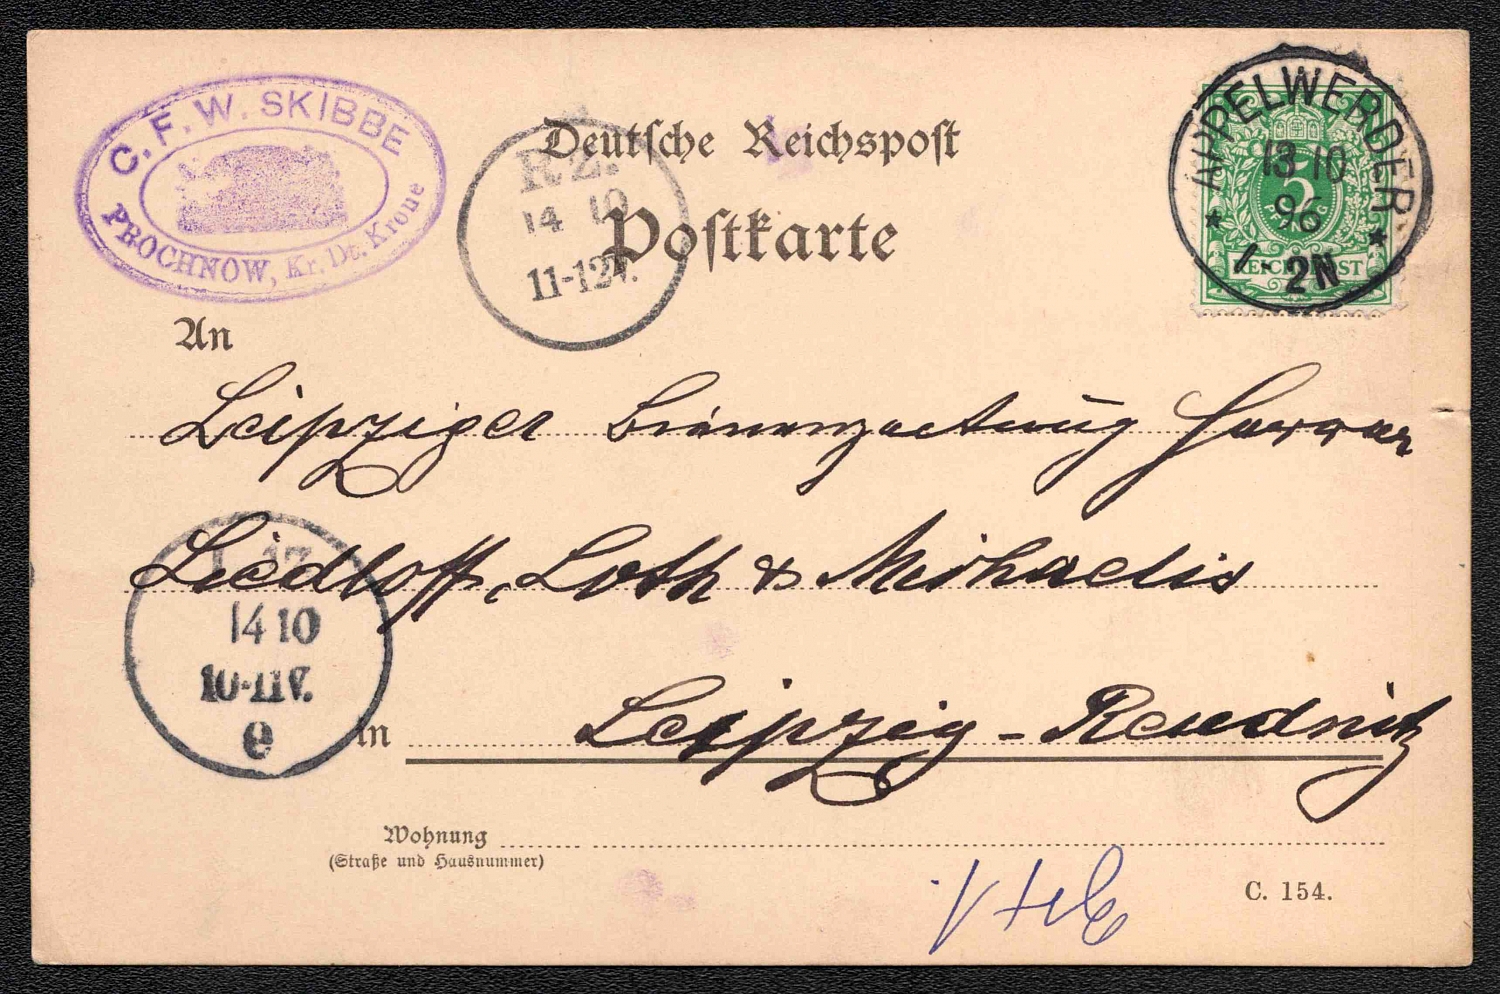 C. F. W. SKIBBE
PROCHNOW, Kr. Dt. Krone
Deutsche Reichspost
Postkarte
APPELWERDER
13 10
96
1-2N
5
REICHSPOST
RZ.
14 10
11-12V.
An
Leipziger Bienenzeitung Herren
Liedloff, Loth & Michaelis
14 10
10-11V.
e
in Leipzig-Reudnitz
Wohnung
(Straße und Hausnummer)
C. 154.